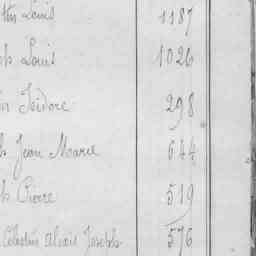 Louis 1187
Louis 1026
Isidore 298
Jean Marie 644
Pierre 519
Célestin Alexis Joseph 576